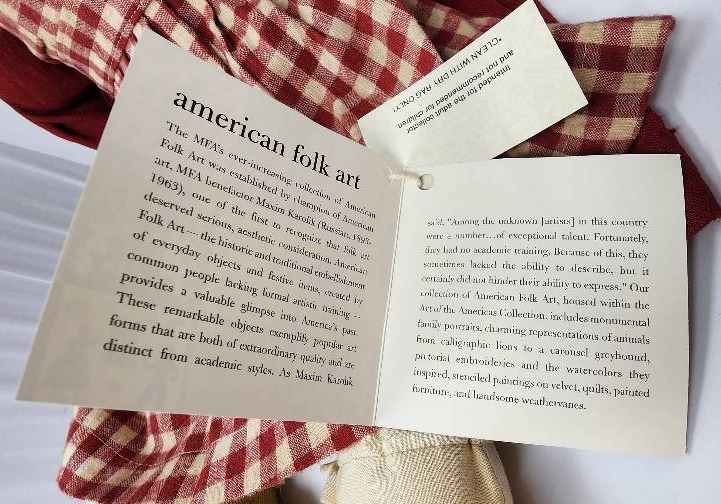 american folk art
The MFA's ever-increasing collection of American
Folk Art was established by champion of American
art, MFA benefactor Maxim Karolik (Russian, 1893-
1963), one of the first to recognize that folk art
deserved serious, aesthetic consideration. American
Folk Art --- the historic and traditional embellishment
of everyday objects and festive items, created by
common people lacking formal artistic training --
provides a valuable glimpse into America's past.
These remarkable objects exemplify popular art
forms that are both of extraordinary quality and are
distinct from academic styles. As Maxim Karolik
said, "Among the unknown [artists] in this country
were a number...of exceptional talent. Fortunately,
they had no academic training. Because of this, they
sometimes lacked the ability to describe, but it
certainly did not hinder their ability to express." Our
collection of American Folk Art, housed within the
Art of the Americas Collection, includes monumental
family portraits, charming representations of animals
from calligraphic lions to a carousel greyhound,
pictorial embroideries and the watercolors they
inspired, stenciled paintings on velvet, quilts, painted
furniture, and handsome weathervanes.
Intended for the adult collector
and not recommended for children.
*CLEAN WITH DRY RAG ONLY!